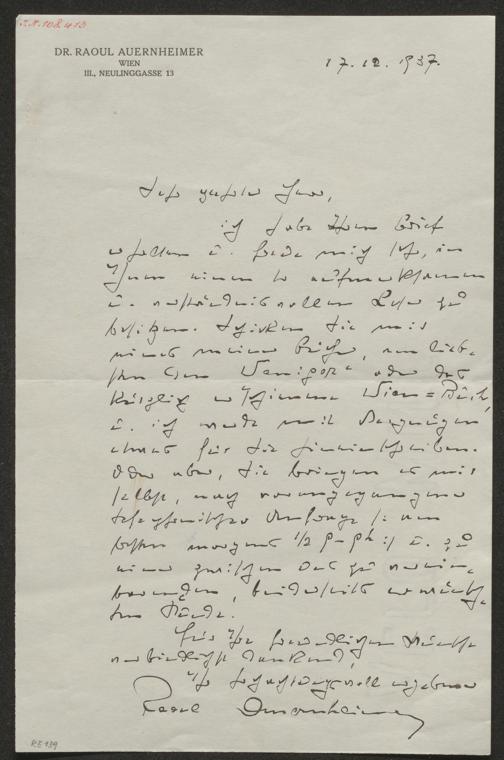 I.N. 108.413
DR. RAOUL AUERNHEIMER
WIEN
III., NEULINGGASSE 13
17.12.1937.
Sehr geehrter Herr,
ich habe Ihren Brief
erhalten u. freue mich sehr, in
Ihnen einen so aufmerksamen
u. verständnisvollen Leser zu
besitzen. Schicken Sie mir
eines meiner Bücher, am liebs-
ten oder das
kürzlich erschienene Wien=Buch,
u. ich werde mit Vergnügen
etwas für Sie hineinschreiben.
Oder aber, Sie bringen es mir
selbst, nach vorangegangener
telephonischer Anfrage /: am
besten morgens 1/2 9-9h :/ u. zu
einer zwischen uns zu verein-
barenden, beiderseits erwünsch-
ten Stunde.
Für Ihre freundlichen Wünsche
verbindlichst dankend,
Ihr hochachtungsvoll ergebener
Raoul Auernheimer
RE 139